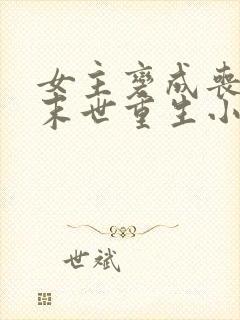 女主变成丧
末世重生小
世斌